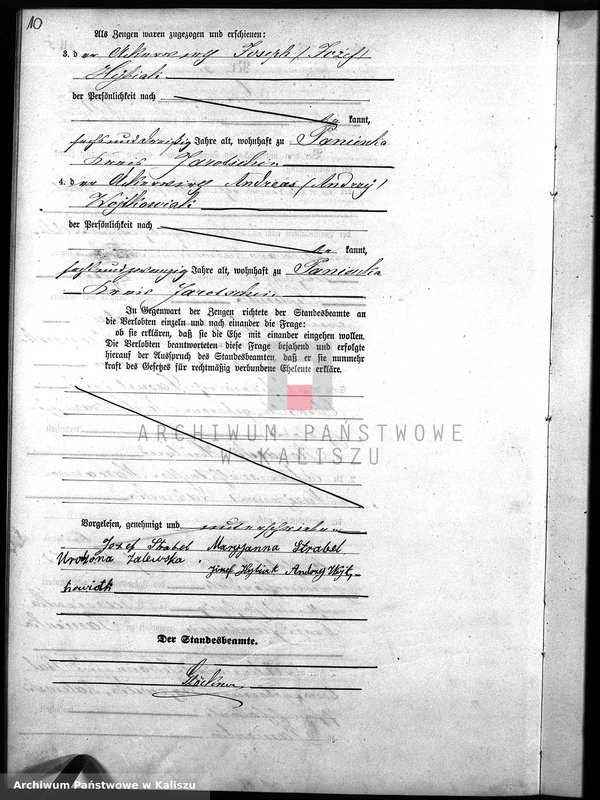 10
Als Zeugen waren zugezogen und erschienen:
3. der Ackerwirth Joseph (Józef)
Hybiak
der Persönlichkeit nach
be kannt,
sechsunddreißig Jahre alt, wohnhaft zu Panienka
Kreis Jarotschin
4. der Ackerwirth Andreas (Andrzej)
Wojtkowiak
der Persönlichkeit nach
be kannt,
sechsundzwanzig Jahre alt, wohnhaft zu Panienka
Kreis Jarotschin
In Gegenwart der Zeugen richtete der Standesbeamte an
die Verlobten einzeln und nach einander die Frage:
ob sie erklären, daß sie die Ehe mit einander eingehen wollen.
Die Verlobten beantworteten diese Frage bejahend und erfolgte
hierauf der Ausspruch des Standesbeamten, daß er sie nunmehr
kraft des Gesetzes für rechtmäßig verbundene Eheleute erkläre.
ARCHIWUM PAŃSTWOWE
W KALISZU
Vorgelesen, genehmigt und unterschrieben
Jozef Strabel Maryjanna Strabel
Urodzona Zalewska. Jozef Hybiak Andrzej Wojt-
kowiak
Der Standesbeamte.
Archiwum Państwowe w Kaliszu